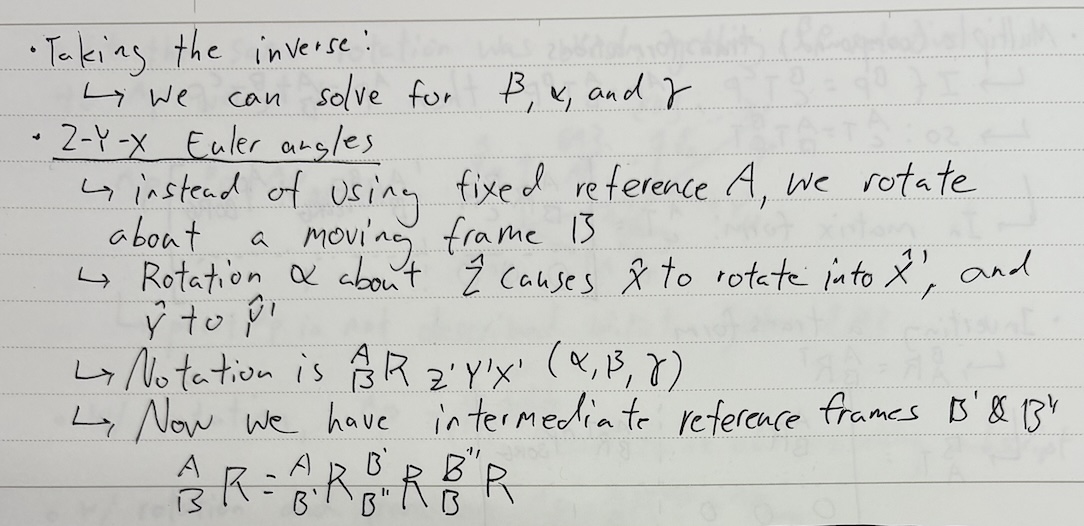 · Taking the inverse:
↳ we can solve for β, α, and γ
· Z-Y-X Euler angles
↳ instead of using fixed reference A, we rotate
about a moving frame B
↳ Rotation α about Ẑ causes X̂ to rotate into X̂', and
Ŷ to Ŷ'
↳ Notation is ᴬ_B R Z'Y'X' (α, β, γ)
↳ Now we have intermediate reference frames B' & B"
ᴬ_B R = ᴬ_B' R ᴮ'_B" R ᴮ"_B R